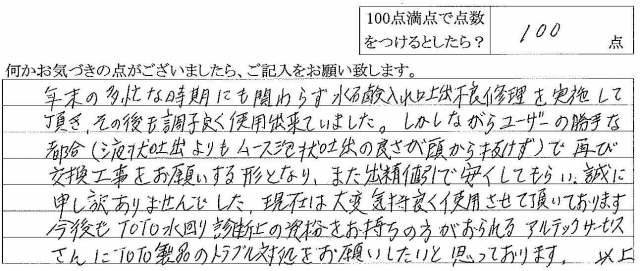 100点満点で点数
をつけるとしたら？ 100 点
何かお気づきの点がございましたら、ご記入をお願い致します。
年末の多忙な時期にも関わらず水石鹸入れ吐出不良修理を実施して
頂き、その後も調子良く使用出来ていました。しかしながらユーザーの勝手な
都合(液状吐出よりもムース泡状吐出の良さが頭から抜けず)で再び
交換工事をお願いする形となり、また出精値引で安くしてもらい、誠に
申し訳ありませんでした。現在は大変気持良く使用させて頂いております
今後もTOTO水回り診断士の資格をお持ちの方がおられるアルテックサービス
さんにTOTO製品のトラブル対処をお願いしたいと思っております。 以上